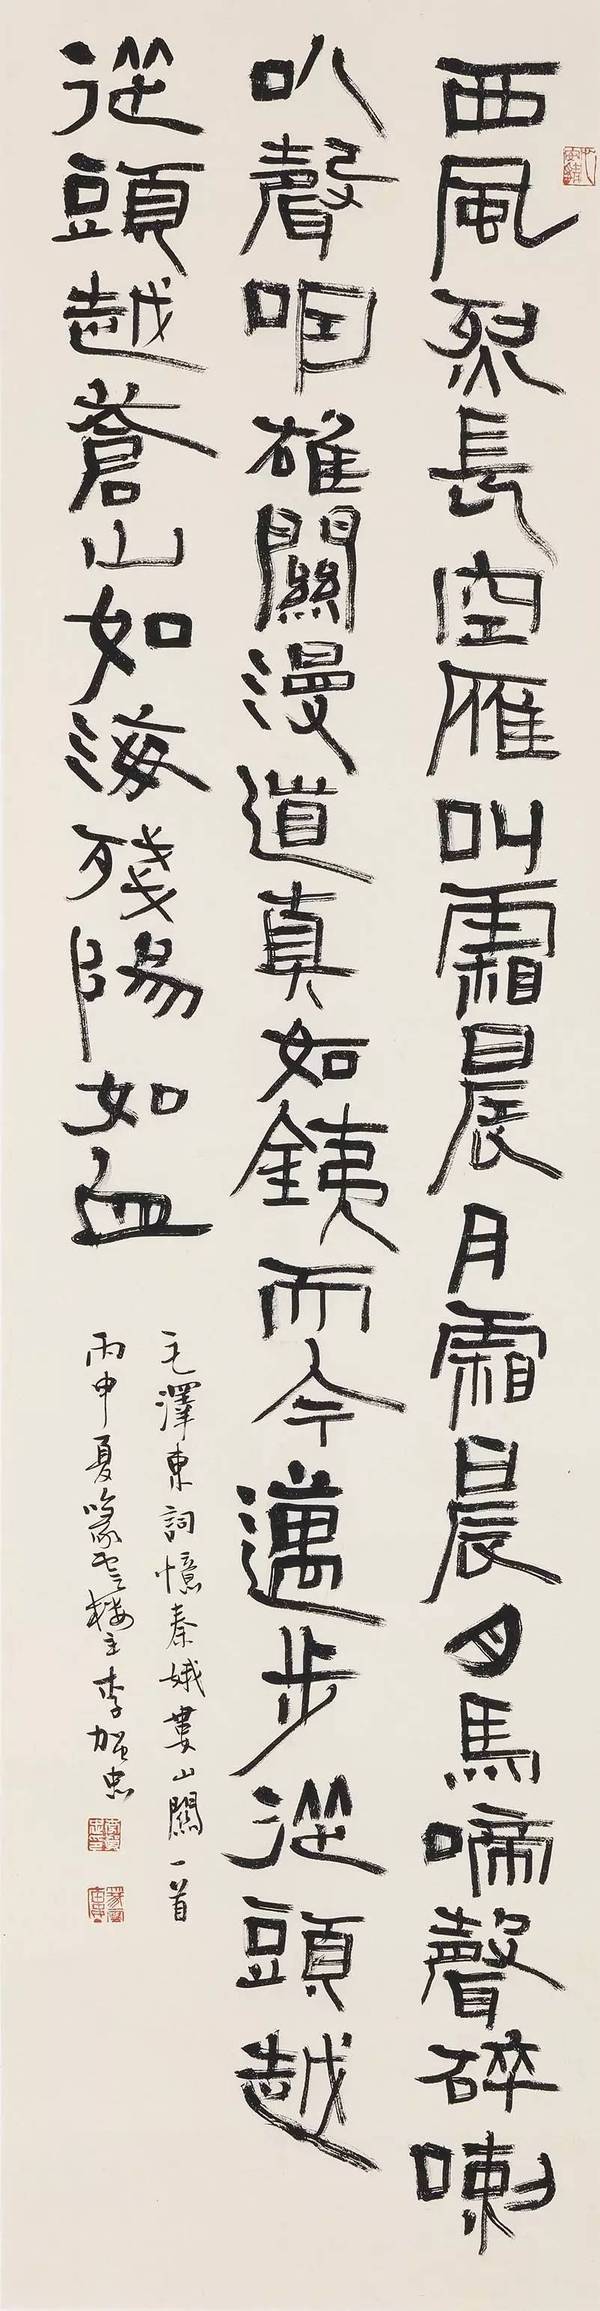 西風烈長空雁叫霜晨月霜晨月馬啼聲碎喇
叭聲咽雄關漫道真如鐵而今邁步從頭越
從頭越蒼山如海殘陽如血
毛澤東詞憶秦娥婁山關一首
丙申夏 樓主李加忠